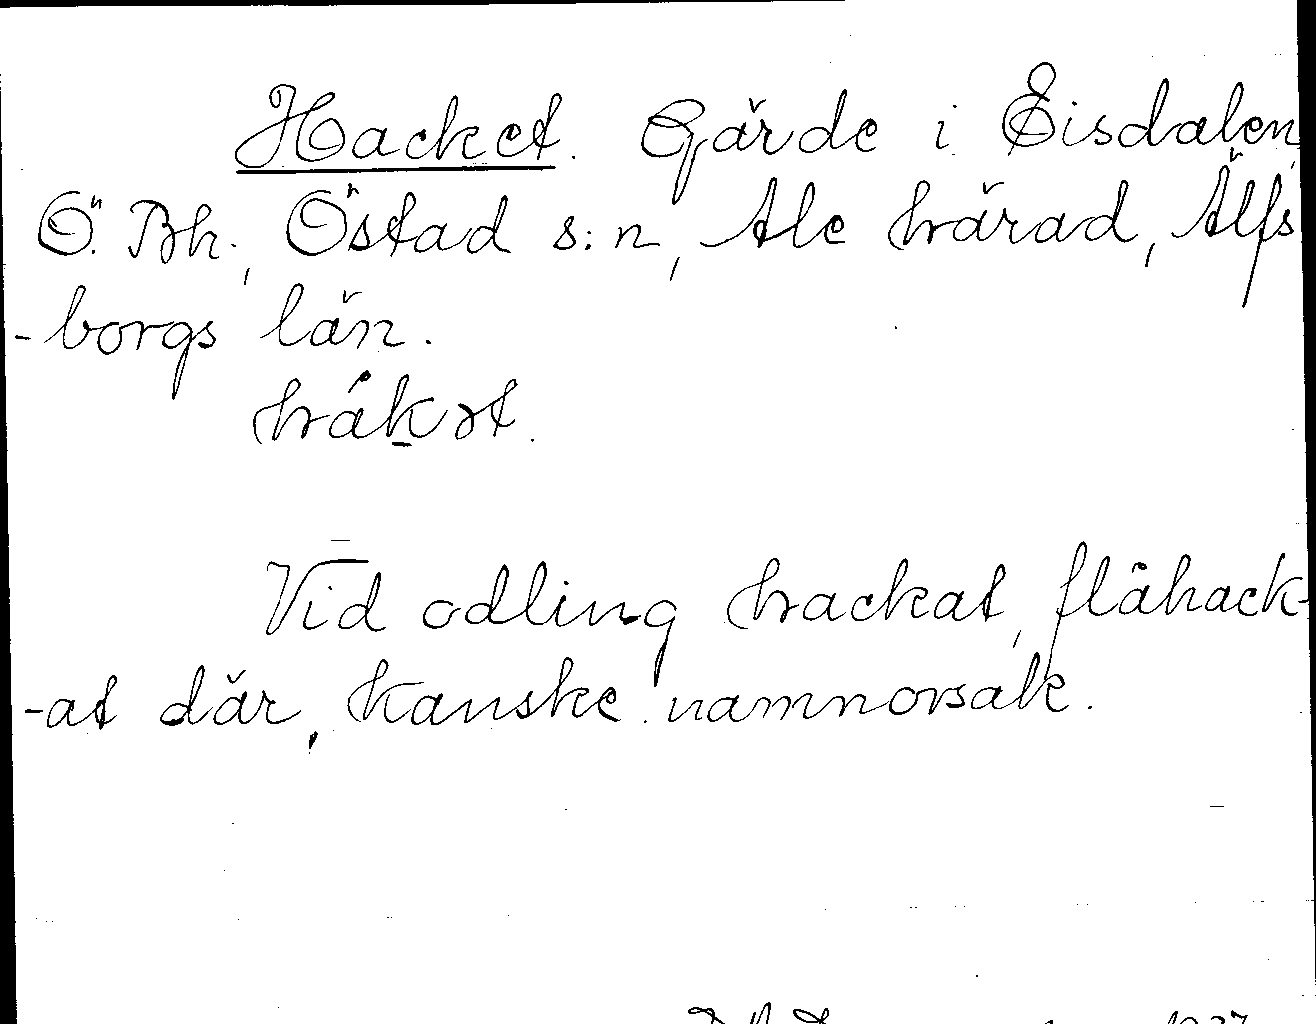 Hacket. Gärde i Sisdalen,
Ö. Bh., Östad s:n, Ale härad, Älfs
-borgs län.
hákət.
Vid odling hackat, flåhack-
-at där, kanske namnorsak.